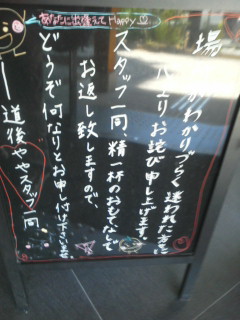 あなたに出逢えてHappy♡
場所がわかりづらく迷われた方を
心よりお詫び申し上げます。
スタッフ一同、精一杯のおもてなしで
お返し致しますので、
どうぞ何なりとお申し付け下さいませ。
道後ややスタッフ一同